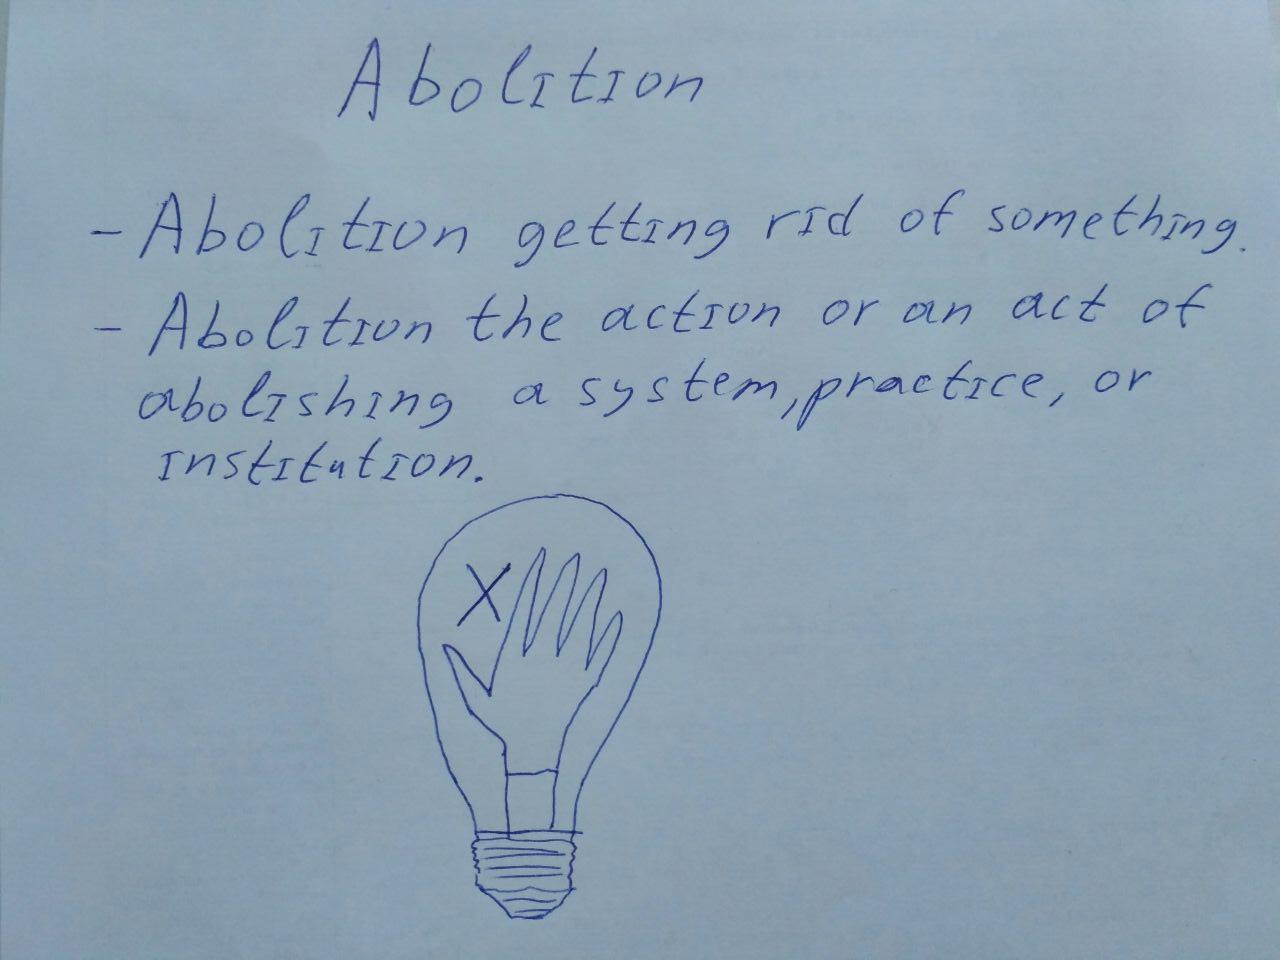 Abolition
- Abolition getting rid of something.
- Abolition the action or an act of
abolishing a system, practice, or
institution.
X